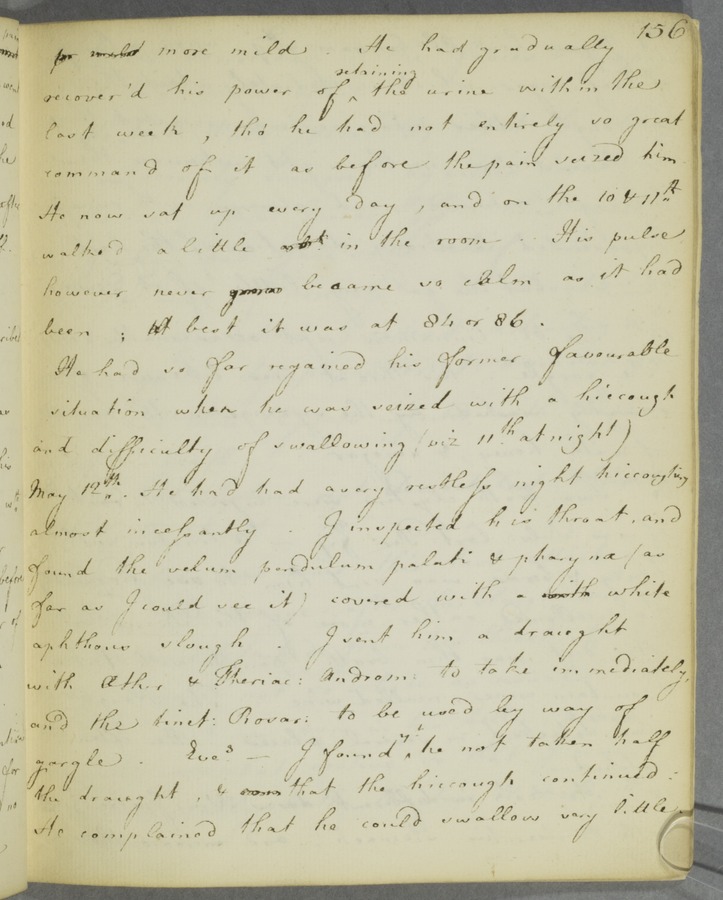 156
more mild. He had gradually
retaining
recover'd his power of ^ the urine within the
last week, tho' he had not entirely so great
command of it as before the pain seized him.
He now sat up every day, and on the 10 & 11th
walked a little in the room. His pulse
however never became so calm as it had
been; At best it was at 84 or 86.
He had so far regained his former favourable
situation when he was seized with a hiccough
and difficulty of swallowing (viz 11th at night)
May 12th. He had had a very restless night hiccoughing
almost incessantly. I inspected his throat, and
found the velum pendulum palati & pharynx (as
far as I could see it) covered with a with white
aphthous slough. I sent him a draught
with Æth: & Theriac: Androm: to take immediately,
and the tinct: Rosar: to be used by way of
gargle. Eve3 — I found yt ^ he not taken half
the draught, & that the hiccough continued:
He complained that he could swallow very little.